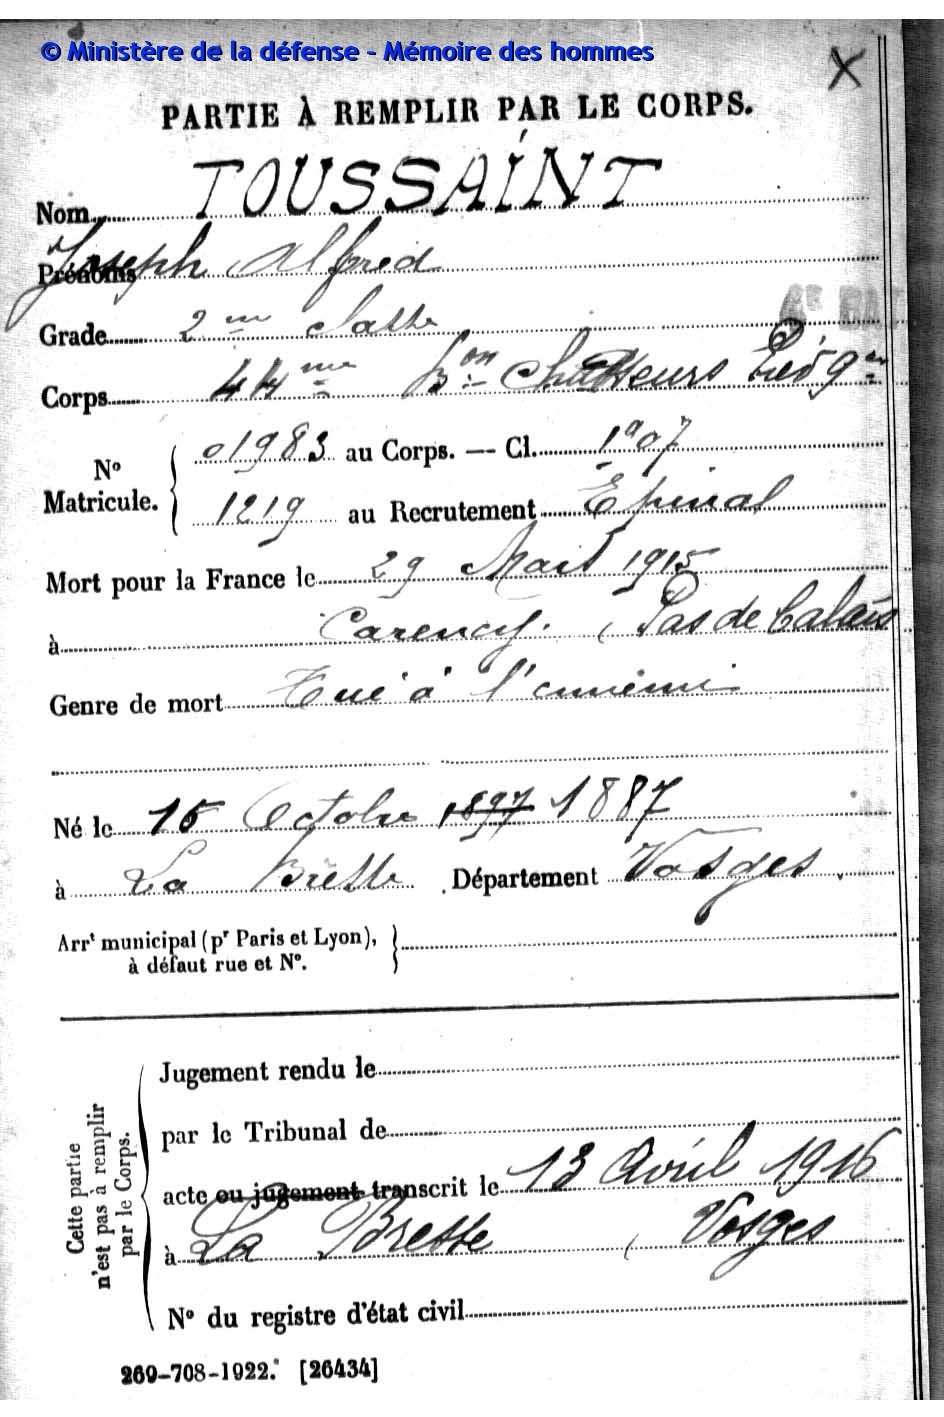 © Ministère de la défense - Mémoire des hommes
X
PARTIE À REMPLIR PAR LE CORPS.
Nom TOUSSAINT
Prénoms Joseph Alfred
Grade 2me classe
Corps 44me Bon Chasseurs
No Matricule. 01983 au Corps. — Cl. 1907
1219 au Recrutement Epinal
Mort pour la France le 29 Mars 1915
à Carency. (Pas de Calais
Genre de mort Tué à l'ennemi
Né le 15 Octobre 1897 1887
à La Bresse Département Vosges
Arrt municipal (pr Paris et Lyon),
à défaut rue et No.
Cette partie
n'est pas à remplir
par le Corps.
Jugement rendu le
par le Tribunal de
acte ou jugement transcrit le 13 Avril 1916
à La Bresse (Vosges
No du registre d'état civil
269-708-1922. [26434]